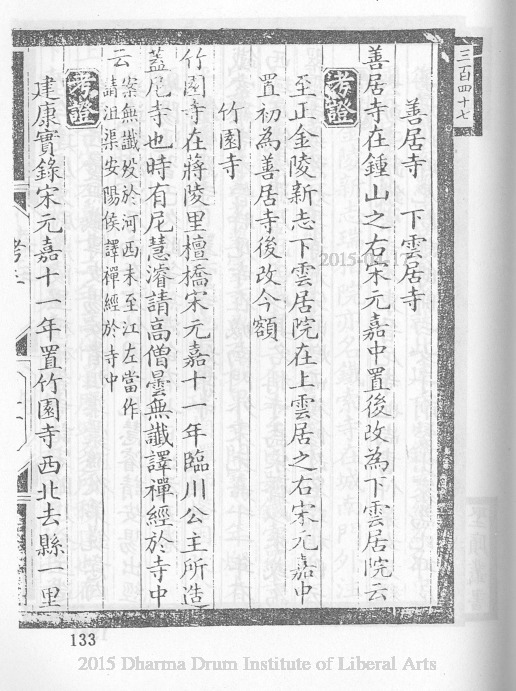 三百四十七
善居寺 下雲居寺
善居寺在鍾山之右宋元嘉中置後改為下雲居院云
考證
至正金陵新志下雲居院在上雲居之右宋元嘉中
置初為善居寺後改今額
竹園寺
竹園寺在蔣陵里檀橋宋元嘉十一年臨川公主所造
蓋尼寺也時有尼慧濬請高僧曇無讖譯禪經於寺中
云案無讖歿於河西未至江左當作
請沮渠安陽侯譯禪經於寺中
考證
建康實錄宋元嘉十一年置竹園寺西北去縣一里
133
2015 Dharma Drum Institute of Liberal Arts